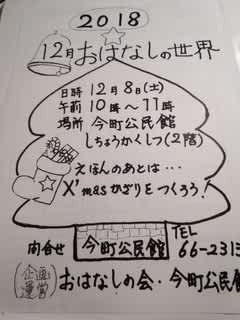 2018
12月 おはなしの世界
日時 12月8日(土)
午前 10時〜11時
場所 今町公民館
しちょうかくしつ(2階)
えほんのあとは…
X'masかざりをつくろう!
問合せ 今町公民館 TEL 66-2313
(企画運営) おはなしの会・今町公民館